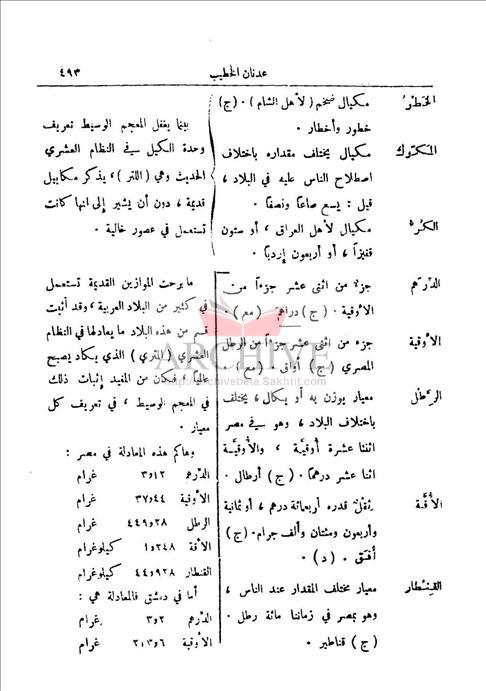 عدنان الخطيب
٤٩٣
الخطرُ
مكيال ضخم ( لأهل الشام ) . (ج)
خطور وأخطار .
المكوك
مكيال يختلف مقداره باختلاف
اصطلاح الناس عليه في البلاد ،
قيل : يسع صاعاً ونصفاً .
الكرّ
مكيال لأهل العراق ، أو ستون
قفيزاً ، أو أربعون إردباً .
بينما يغفل المعجم الوسيط تعريف
وحدة الكيل في النظام العشري
الحديث وهي ( اللتر ) ، يذكر مكاييل
قديمة ، دون أن يشير إلى انها كانت
تستعمل في عصور خالية .
الدرهم
جزء من اثنى عشر جزءاً من
الأوقية . ( ج ) دراهم ( مع ) .
الأوقية
جزء من اثنى عشر جزءاً من الرطل
المصري ( ج ) أواق . ( مع ) .
الرطل
معيار يوزن به أو يكال ، يختلف
باختلاف البلاد ، وهو في مصر
اثنتا عشرة أوقية ، والأوقية
اثنا عشر درهماً . ( ج ) أرطال .
الأُقَّة
ثقل قدره أربعمائة درهم ، أو ثمانية
وأربعون ومئتان وألف جرام . ( ج )
أقق . ( د ) .
القِنطار
معيار مختلف المقدار عند الناس ،
وهو بمصر في زماننا مائة رطل .
( ج ) قناطير .
ما برحت الموازين القديمة تستعمل
في كثير من البلاد العربية ، وقد أثبت
قسم من هذه البلاد ما يعادلها في النظام
العشري ( المتري ) الذي يكاد يصبح
عالمياً ، فكان من المفيد إثبات ذلك
في المعجم الوسيط ، في تعريف كل
معيار .
وهاكم هذه المعادلة في مصر :
الدرهم ٣٫١٢ غرام
الأوقية ٣٧٫٤٤ غرام
الرطل ٤٤٩٫٢٨ غرام
الأقة ١٫٢٤٨ كيلوغرام
القنطار ٤٤٫٩٢٨ كيلوغرام
أما في دمشق فالمعادلة هي :
الدرهم ٣٫٢ غرام
الأوقية غرام
ARCHIVE
http://archivebeta.Sakhrit.com